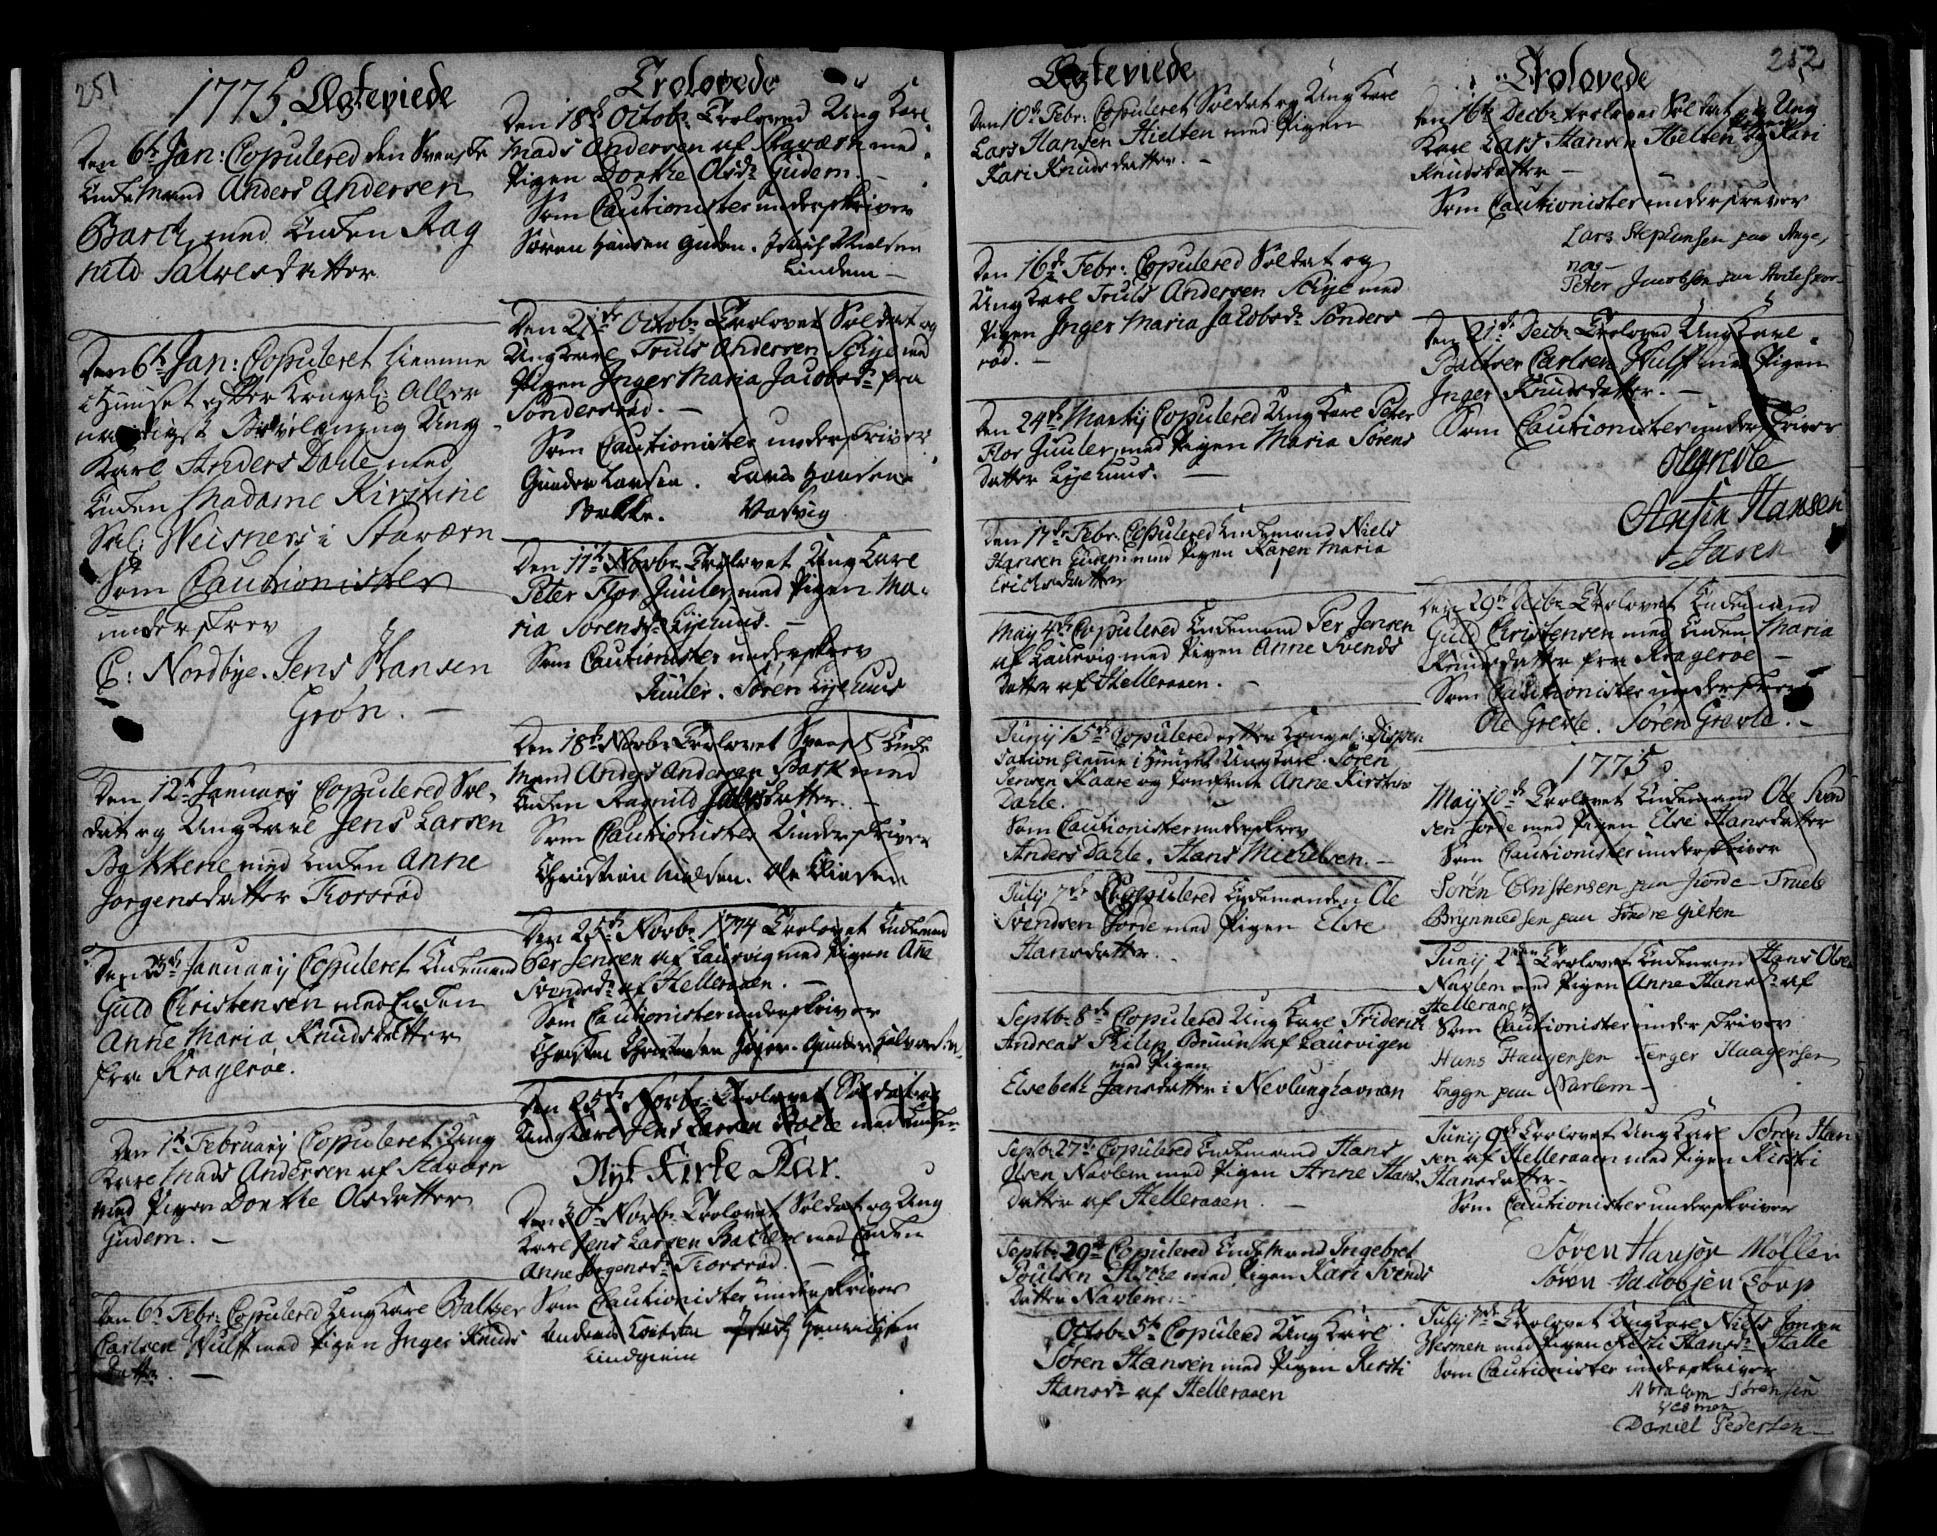 251
1775. Ægteviede
Den 6te Jan: Copulered den Svenske
Enkemand Anders Andersen
Barck med Enken Rag
nild Salvesdatter
Den 6te Jan: Copuleret hiemme
i Huuset efter Kongel: Aller
naadigst Bevilgning Ung
Karl Anders Darle med
Enken Madame Kirstine
Sal: Weisners i Staværn
Som Cautionister
underskrev
C: Nordbye. Jens Hansen
Grøn. —
Den 12te January Copulered Sol-
dat og Ung Karl Jens Larsen
Bakkene med Enken Anne
Jorgensdatter Torsrød
Den 25de January Copuleret Enkemand
Guld Christensen med Enken
Anne Maria Knudsdatter
fra Kragerøe.
Den 1te February Copuleret Ung
Karl Mads Andersen af Staværn
med Pigen Dorthe Olsdatter
Gudem. —
Den 6te Febr: Copulered Ung Karl Baltzer
Carlsen Wulff med Pigen Inger Knuds
datter. —
Trolovede
Den 18de Octobr Troloved Ung Karl
Mads Andersen af Staværn med
Pigen Dorthe Olsdr Gudem. —
Som Cautionister underskriver
Søren Hansen Gudem. Nielsen
Lindem —
Den 21de Octobr Trolovet Soldat og
Ung Karl Truls Andersen Skye med
Pigen Inger Maria Jacobsdr fra
Sonderrød. —
Som Cautionister underskriver
Gunder Larsen. Lars Hansen
Vasvig
Den 17de Novbr Trolovet Ung Karl
Peter Flor Juuler, med Pigen Ma-
ria Sorensdr Lyehuus. —
Som Cautionister underskrev
Juuler. Søren Lyehuus
Den 18de Novbr Trolovet Svensk Enke
Mand Anders Andersen Bark med
Enken Ragnild Salvesdatter. —
Som Cautionister Underskriver
Christian Nielsen. Ole
Den 25de Novbr 1774 Trolovet Enkemand
Per Jensen af Laurvig med Pigen Ane
Svendsdr af Helleraaen. —
Som Cautionister underskriver
Christen Christensen Gunder Halvorsen
Den 25de Novbr Trolovet Soldat og
Ung Karl Jens Larsen med Enken
Nyt Kirke Aar.
Den 30te Novbr Trolovet Soldat og Ung
Karl Jens Larsen Bakkene med Enken
Anne Jorgensdr Torsrød. —
Som Cautionister underskriver
Anders
Lindhiem
Ægteviede
Den 10de Febr: Copuleret Soldat og Ung Karl
Lars Hansen Hielten med Pigen
Kari Knudsdatter. —
Den 16de Febr: Copulered Soldat og
Ung Karl Truls Andersen Skye med
Pigen Inger Maria Jacobsdr Sonders
rød. —
Den 24de Martij Copulered Ung Karl Peter
Flor Juuler, med Pigen Maria Sorens
Datter Lyehuus. —
Den 17de Febr: Copulered Enkemand Niels
Hansen Gudem med Pigen Karen Maria
Ericksdatter
May 4de Copulered Enkemand Per Jensen
af Laurvig med Pigen Anne Svends
Datter af Helleraaen. —
Junij 15de Copulered efter Kongel: Dispen
sation hiemme i Huuset Ung Karl Søren
Jensen Kaare og Jomfrue Anne Kirstine
Darle.
Som Cautionister underskrev
Anders Darle. Hans Michelsen. —
Julij 7de Copulered Enkemanden Ole
Svendsen Jorde med Pigen Else
Hansdatter.
Septbr 8de Copulered Ung Karl Friderich
Andreas Philip Bruun af Laurvigen
med Pigen
Elsebeth Jansdatter i Nevlunghavnen
Septbr 27de Copulered Enkemand Hans
Olsen Navlem med Pigen Anne Hans
Datter af Helleraaen —
Septbr 29de Copulered Enkemand Ingebret
Poulsen med Pigen Kari Svends
Datter Navlem —
Octobr 5te Copulered Ung Karl
Søren Hansen med Pigen Kirsti
Hansdr af Helleraaen
Trolovede
252
Den 16de Decbr trolovet Soldat og Ung
Karl Lars Hansen Hielten og Kari
Knudsdatter —
Som Cautionister underskrever
Lars Stephansen paa
Peter Jacobsen paa
Den 21de Decbr Troloved Ung Karl
Baltzer Carlsen Wulff med Pigen
Inger Knudsdatter. —
Som Cautionister underskriver
Hansen
Den 29de Decbr Trolovet Enkemand
Guld Christensen med Enken Maria
Knudsdatter fra Kragerøe —
Som Cautionister underskrev
Ole Grevle. Søren Grevle. —
1775.
May 10de Trolovet Enkemand Ole Svend
sen Jorde med Pigen Else Hansdatter
Som Cautionister underskriver
Søren Christensen paa Jorde Truels
Brynnildsen paa Søndre Gilten
Junij 2den Trolovet Enkemand Hans Olsen
Navlem med Pigen Anne Hansdr af
Helleraaen
Som Cautionister underskriver
Hans Haagensen Terger Haagensen
begge paa Narlem —
Junij 9de Trolovet Ung Karl Søren Han
sen af Helleraaen med Pigen Kirsti
Hansdatter —
Som Cautionister underskriver
Søren Hansør Møllen
Søren Jacobsen Torp
Julij 7de Trolovet Ung Karl Niels Jensen
Vesmen med Pigen Kirsti Hansdr Halle
Som Cautionister underskriver
Abraham Sørensen
Vesmen
Daniel Pedersen